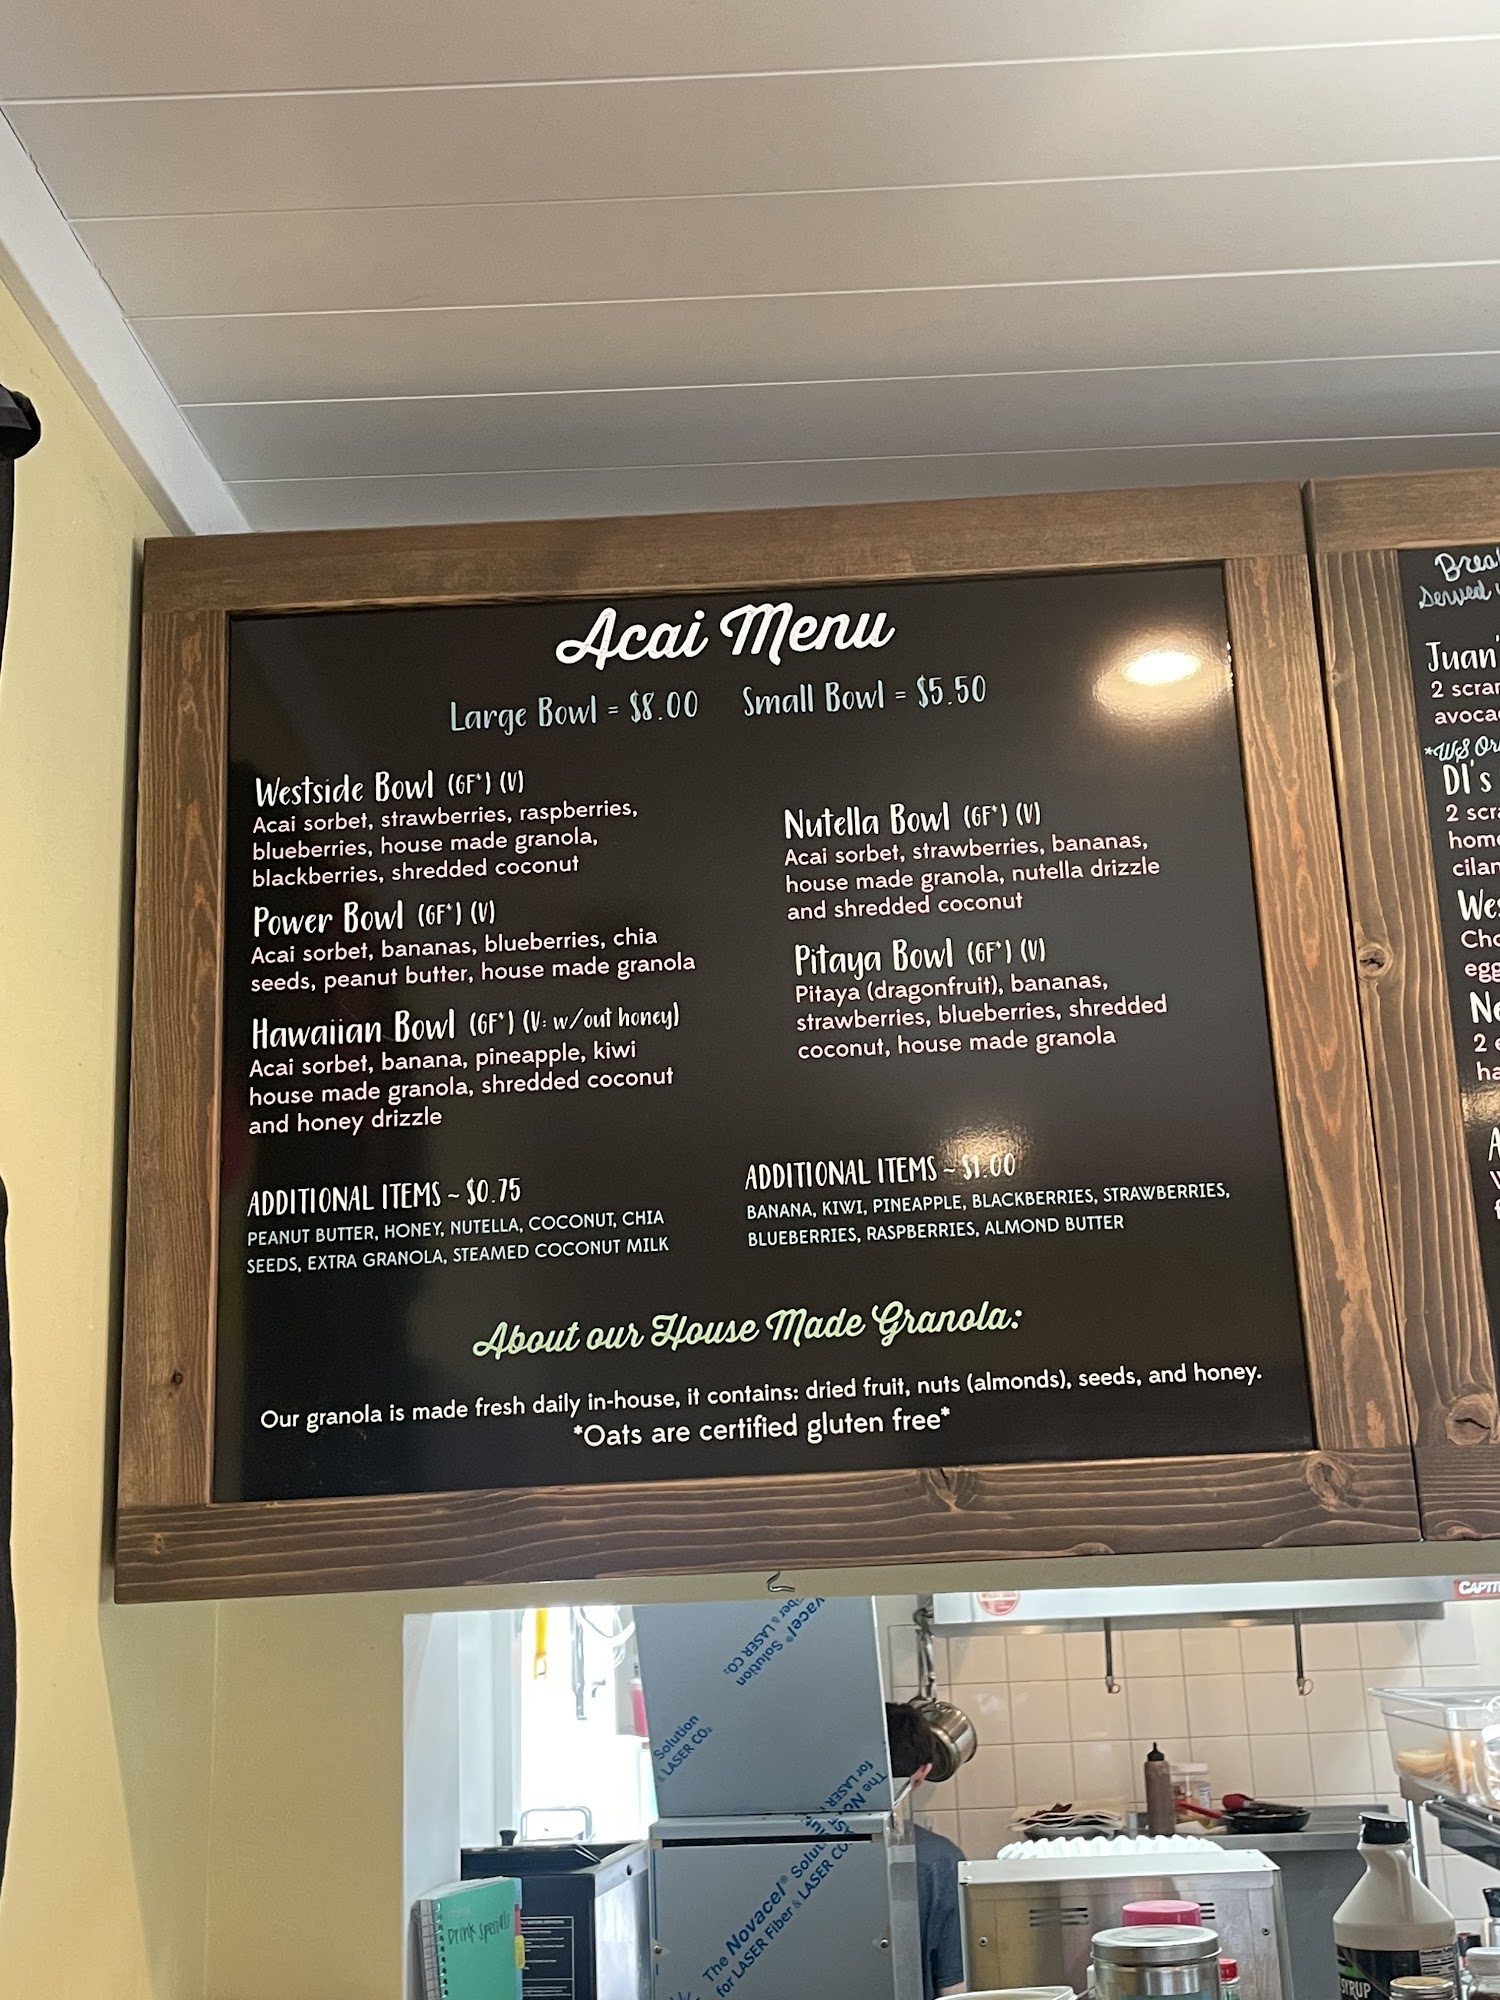 Acai Menu
Large Bowl = $8.00 Small Bowl = $5.50
Westside Bowl (GF*) (V)
Acai sorbet, strawberries, raspberries,
blueberries, house made granola,
blackberries, shredded coconut
Power Bowl (GF*) (V)
Acai sorbet, bananas, blueberries, chia
seeds, peanut butter, house made granola
Hawaiian Bowl (GF*) (V: w/out honey)
Acai sorbet, banana, pineapple, kiwi
house made granola, shredded coconut
and honey drizzle
Nutella Bowl (GF*) (V)
Acai sorbet, strawberries, bananas,
house made granola, nutella drizzle
and shredded coconut
Pitaya Bowl (GF*) (V)
Pitaya (dragonfruit), bananas,
strawberries, blueberries, shredded
coconut, house made granola
ADDITIONAL ITEMS ~ $0.75
PEANUT BUTTER, HONEY, NUTELLA, COCONUT, CHIA
SEEDS, EXTRA GRANOLA, STEAMED COCONUT MILK
ADDITIONAL ITEMS ~ $1.00
BANANA, KIWI, PINEAPPLE, BLACKBERRIES, STRAWBERRIES,
BLUEBERRIES, RASPBERRIES, ALMOND BUTTER
About our House Made Granola:
Our granola is made fresh daily in-house, it contains: dried fruit, nuts (almonds), seeds, and honey.
*Oats are certified gluten free*
Served
Juan'
2
DI's
2
2
Solution
& LASER CO₂
Solution
& LASER CO₂
The Novacel® Solution
for LASER Fiber & LASER CO₂
The
for LASER
Drink Specials
SYRUP